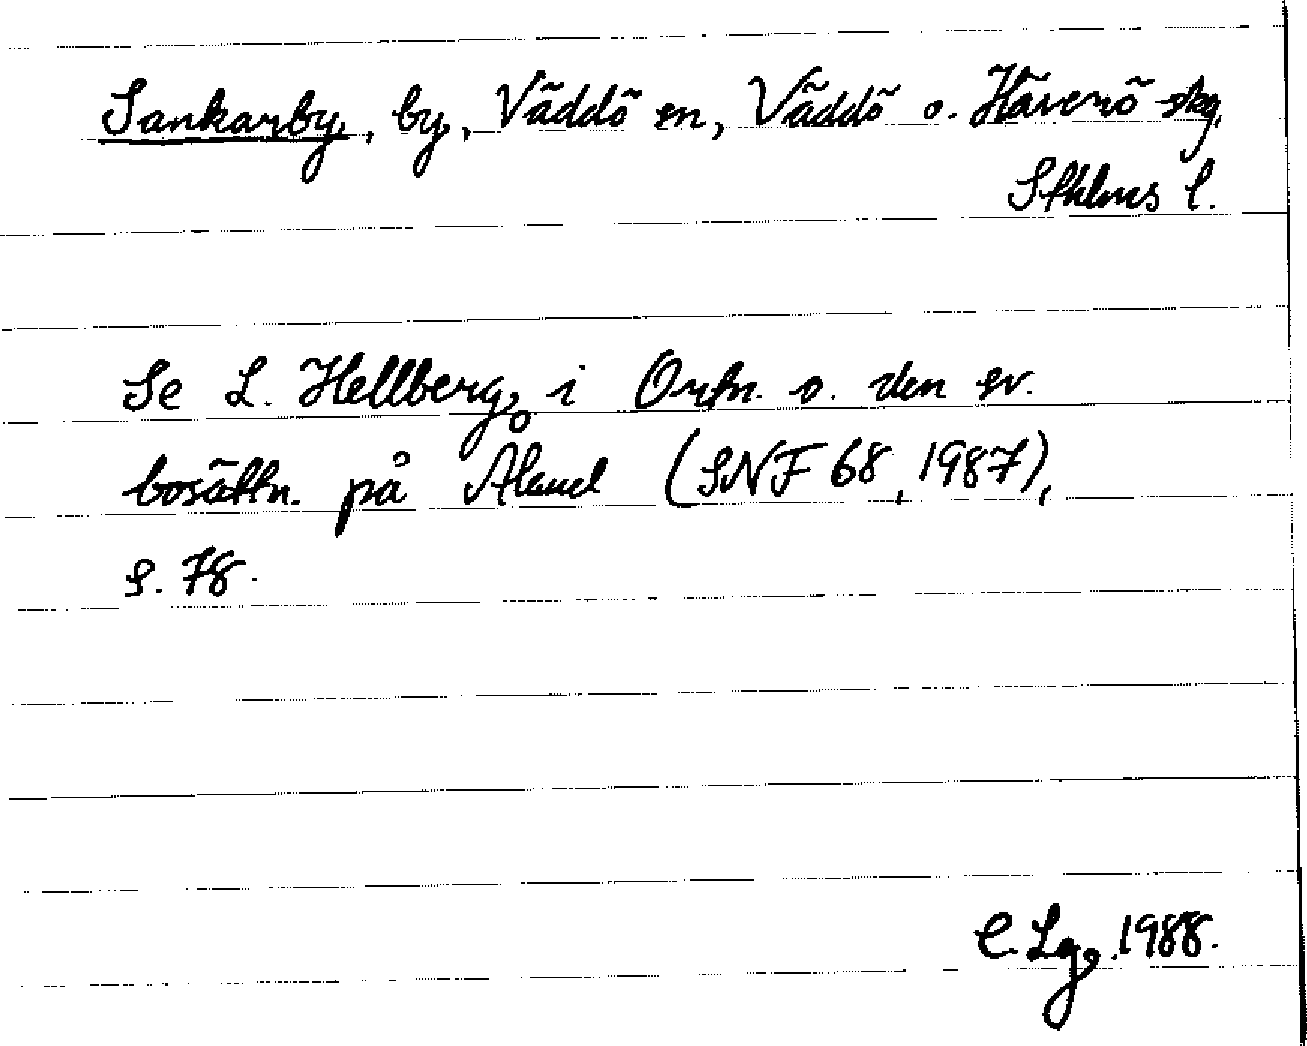 Sankarby, by, Väddö sn, Väddö o. Häverö skg,
Sthlms l.
Se L. Hellberg, i Ortn. o. den sv.
bosättn. på Åland (SNF 68, 1987),
s. 78.
C. Lg, 1988.